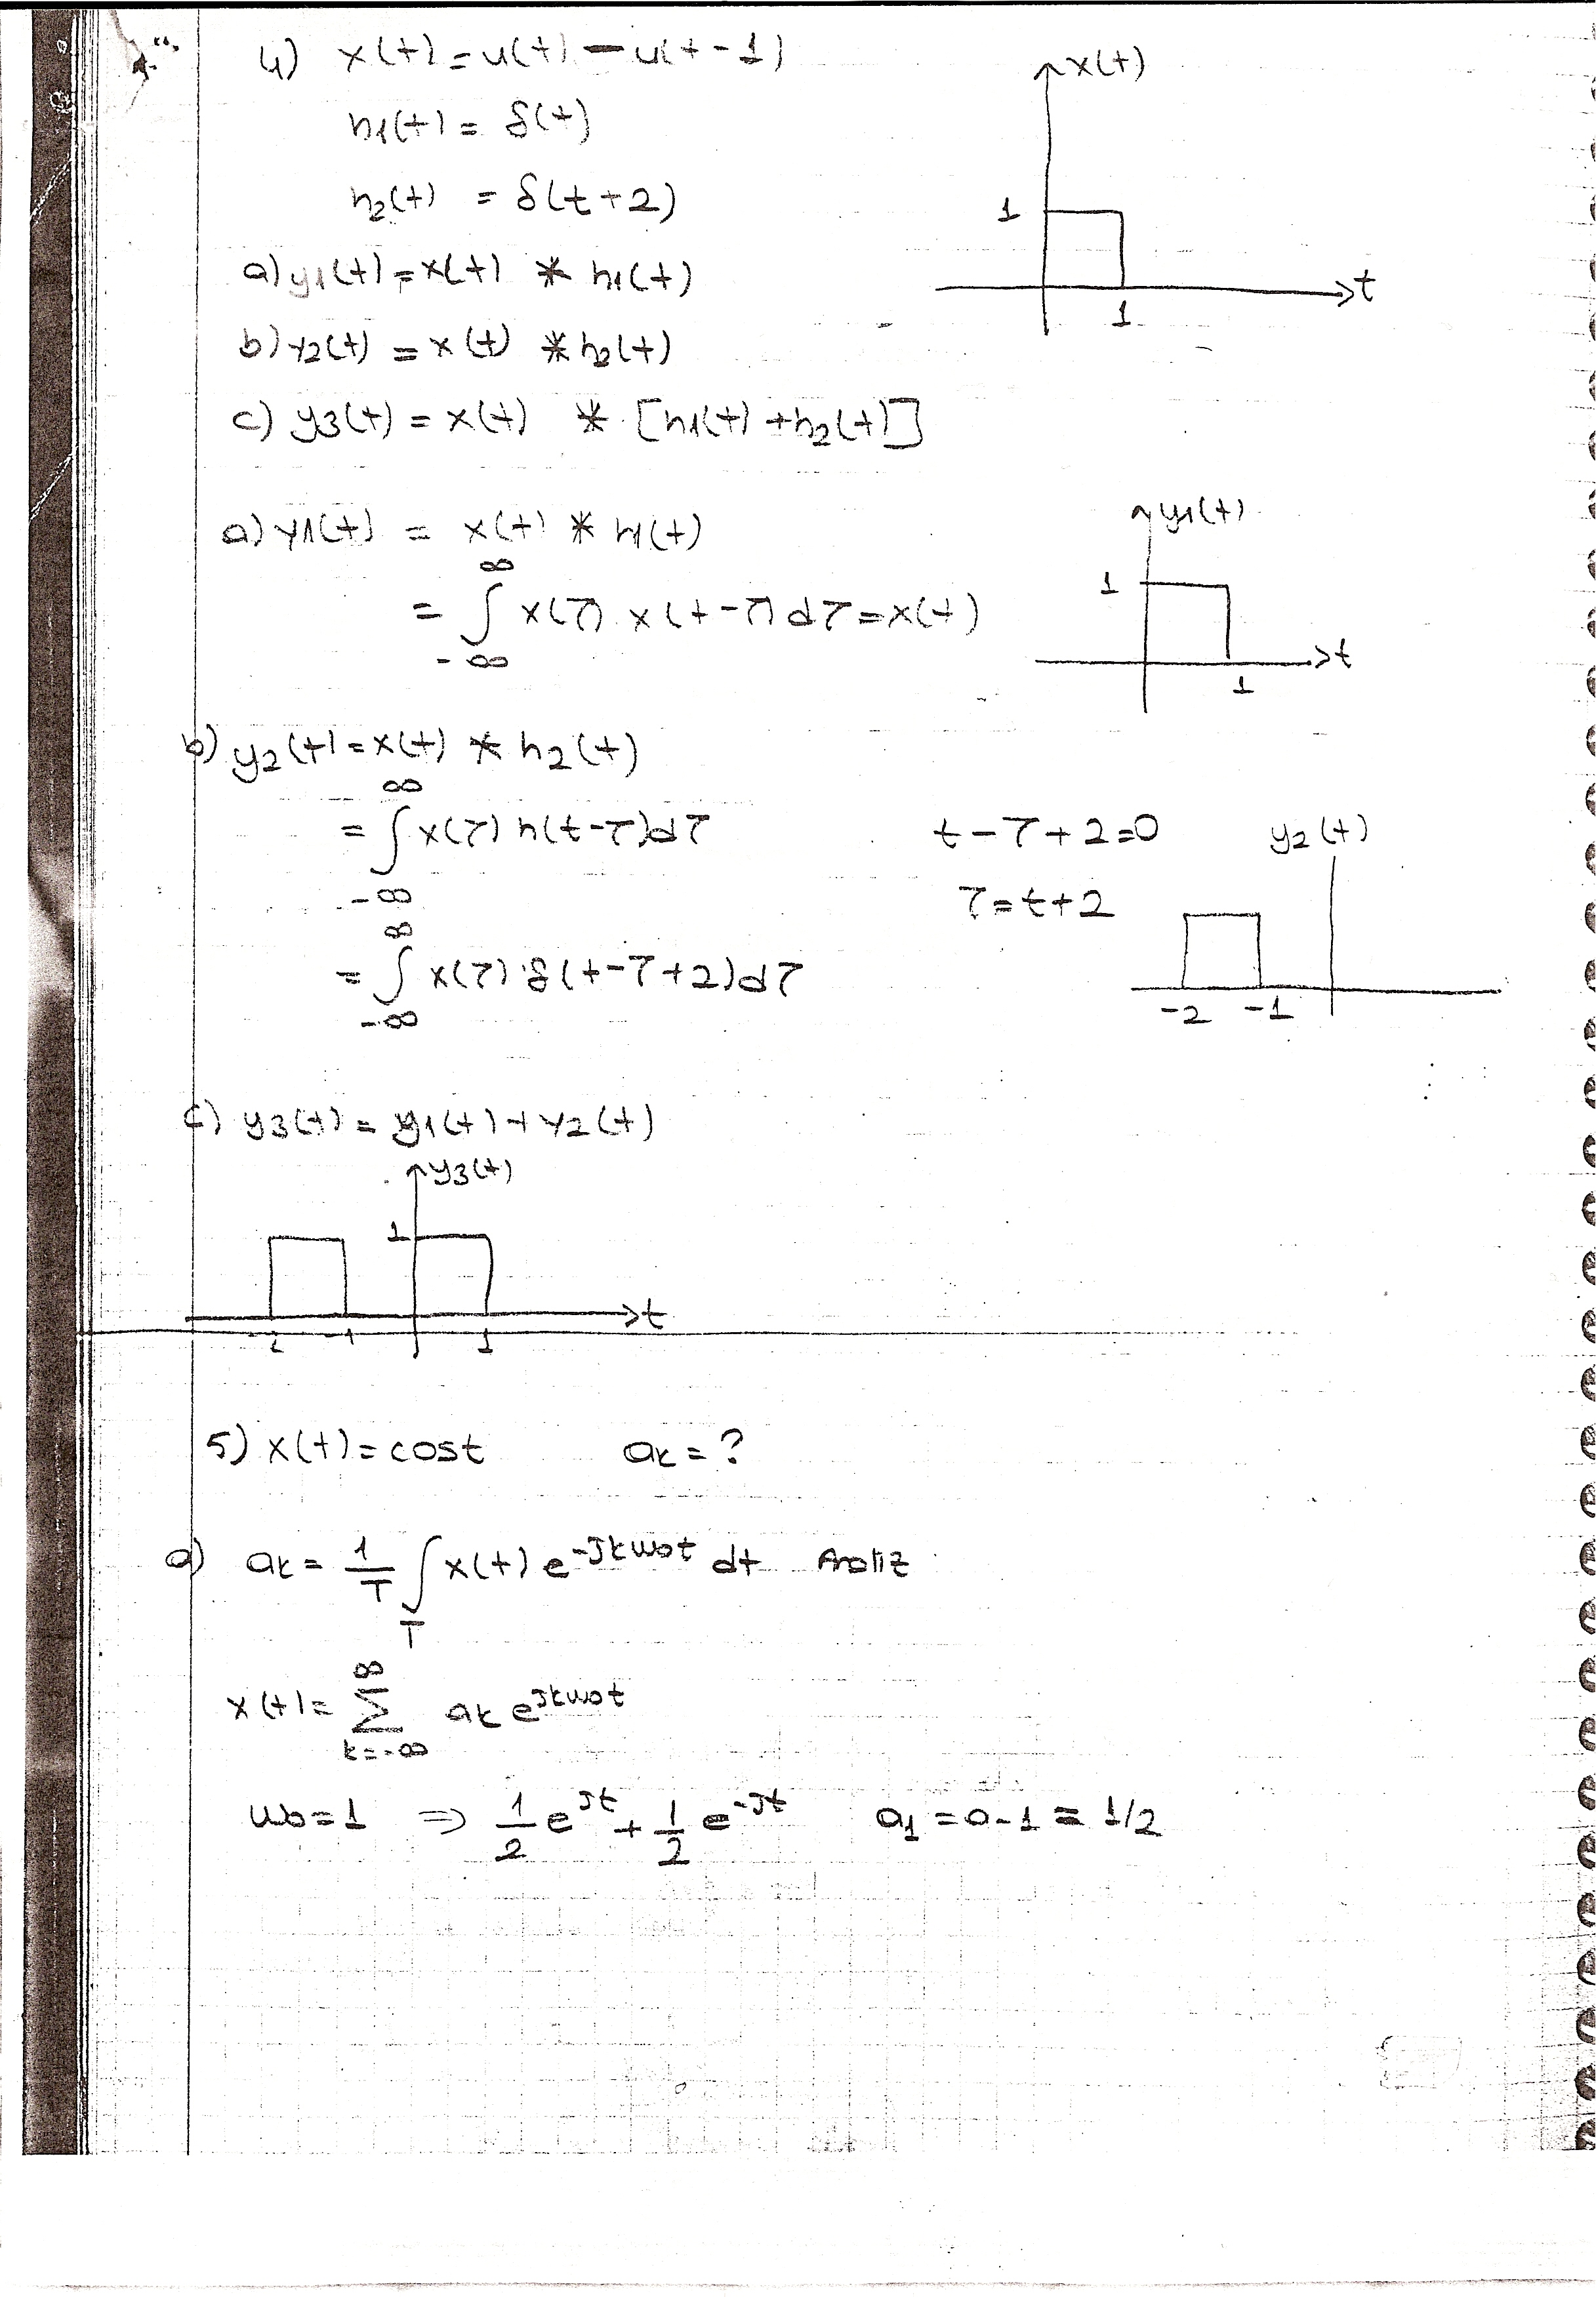 4) x(t) = u(t) - u(t-1)
x(t)
h1(t) = δ(t)
h2(t) = δ(t+2)
1
t
1
a) y1(t) = x(t) * h1(t)
b) y2(t) = x(t) * h2(t)
c) y3(t) = x(t) * [h1(t) + h2(t)]
a) y1(t) = x(t) * h1(t)
= ∫_{-∞}^{∞} x(τ) x(t-τ) dτ = x(t)
y1(t)
1
t
1
b) y2(t) = x(t) * h2(t)
= ∫_{-∞}^{∞} x(τ) h(t-τ) dτ
t-τ+2=0
τ=t+2
= ∫_{-∞}^{∞} x(τ) . δ(t-τ+2) dτ
y2(t)
-2 -1
c) y3(t) = y1(t) + y2(t)
y3(t)
1
t
-2 -1 1
5) x(t) = cost ak = ?
a) ak = 1/T ∫_T x(t) e^{-jkw0t} dt Analiz
x(t) = Σ_{k=-∞}^{∞} ak e^{jkw0t}
w0=1 ⇒ 1/2 e^{jt} + 1/2 e^{-jt} a1 = a-1 = 1/2